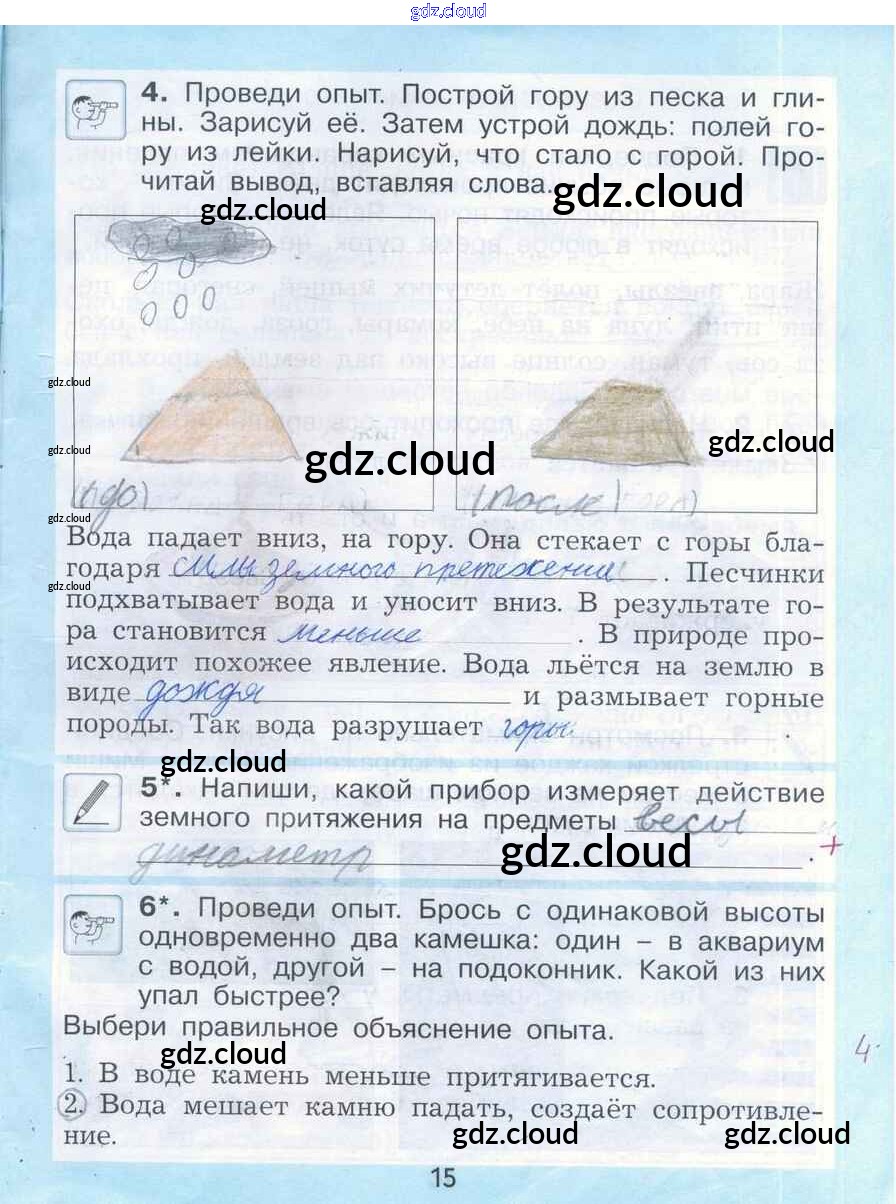 gdz.cloud
4. Проведи опыт. Построй гору из песка и гли-
ны. Зарисуй её. Затем устрой дождь: полей го-
ру из лейки. Нарисуй, что стало с горой. Про-
читай вывод, вставляя слова.
gdz.cloud
gdz.cloud
gdz.cloud
gdz.cloud
gdz.cloud
(до)
(после)
gdz.cloud
Вода падает вниз, на гору. Она стекает с горы бла-
годаря силы земного претежения. Песчинки
gdz.cloud
подхватывает вода и уносит вниз. В результате го-
ра становится меньше. В природе про-
исходит похожее явление. Вода льётся на землю в
виде дождя и размывает горные
породы. Так вода разрушает горы.
gdz.cloud
5*. Напиши, какой прибор измеряет действие
земного притяжения на предметы весы
динаметр. +
gdz.cloud
6*. Проведи опыт. Брось с одинаковой высоты
одновременно два камешка: один – в аквариум
с водой, другой – на подоконник. Какой из них
упал быстрее?
Выбери правильное объяснение опыта.
4
gdz.cloud
1. В воде камень меньше притягивается.
2. Вода мешает камню падать, создаёт сопротивле-
ние.
gdz.cloud
gdz.cloud
15